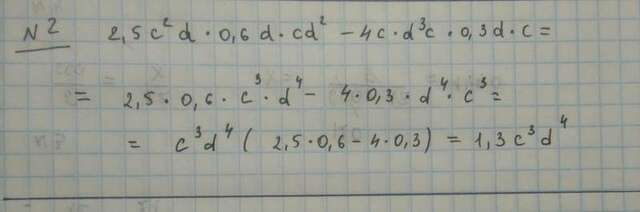 N2 2,5c²d · 0,6d · cd² − 4c · d³c · 0,3d · c =
= 2,5 · 0,6 · c³ · d⁴ − 4 · 0,3 · d⁴ · c³ =
= c³d⁴ ( 2,5 · 0,6 − 4 · 0,3) = 1,3c³d⁴